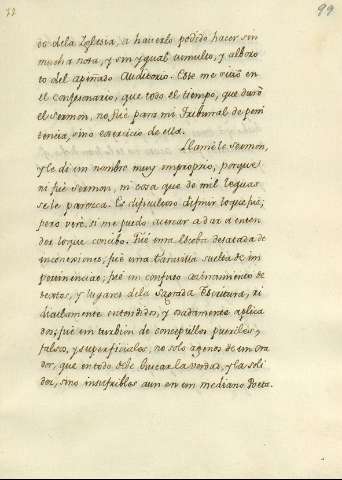 99
do dela Iglesia, a haverlo podido hacer sin
mucha nota, y sin ygual tumulto, y alboro
to del apiñado Auditorio. Este me clavò en
el confesonario, que todo el tiempo, que durò
el Sermon, no fuè para mi Tribunal de peni
tencia, sino exercicio de ella.
Llamèle Sermón,
y le di un nombre muy improprio, porque
ni fuè Sermon, ni cosa que de mil leguas
se le parezca. Es dificultoso difinir lo que fuè;
pero verè, si me puedo acercar a dar a enten
der lo que concibo. Fuè una Escoba desatada de
inconexiones; fuè una taravilla suelta de im
pertinencias; fuè un confuso acinamiento de
textos, y lugares dela Sagrada Escritura, ri
diculamente entendidos, y osadamente aplica
dos; fuè un turbión de conceptillos pueriles,
falsos, y superficiales, no solo agenos de un Ora
dor, que en todo debe buscar la verdad, y la soli
dez, sino insufribles aun en un mediano Poeta.